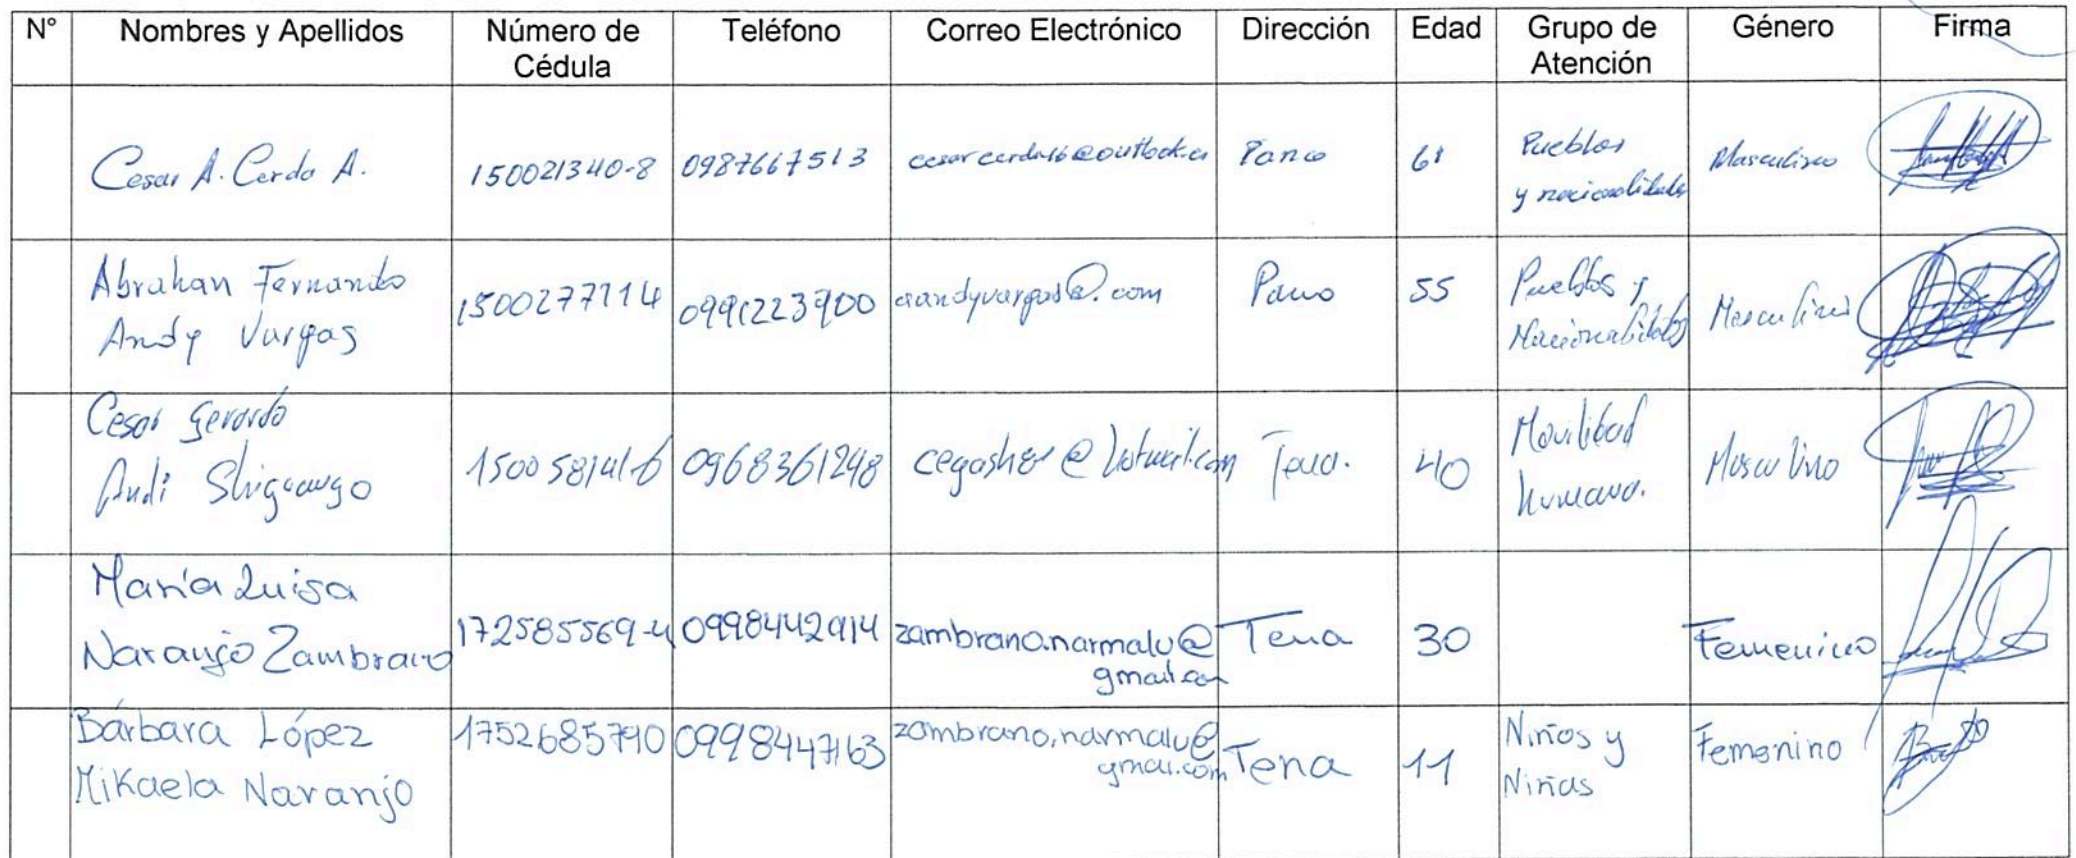 N° Nombres y Apellidos Número de Cédula Teléfono Correo Electrónico Dirección Edad Grupo de Atención Género Firma
Cesar A. Cerda A. 150021340-8 0987667513 Pano 61 Pueblos y nacionalidades Masculino
Abrahan Fernando Andy Vargas 1500277114 0991223900 aandyvargas@.com Pano 55 Pueblos y Nacionalidades Masculino
Cesar Gerardo Andi Shiguango 0968361248 @hotmail.com 40 Movilidad humana. Masculino
María Luisa Naranjo Zambrano 172585569-4 0998442914 zambrano.narmalu@gmail.com Tena 30 Femenino
Bárbara López Mikaela Naranjo 1752685790 0998447163 zambrano.narmalu@gmai.com Tena 11 Niños y Niñas Femenino